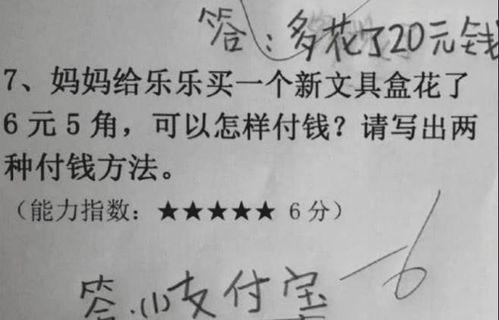 答：多花了20元钱
7、妈妈给乐乐买一个新文具盒花了
6元5角，可以怎样付钱？请写出两
种付钱方法。
（能力指数：★★★★★ 6分）
-6
答：(1)支付宝